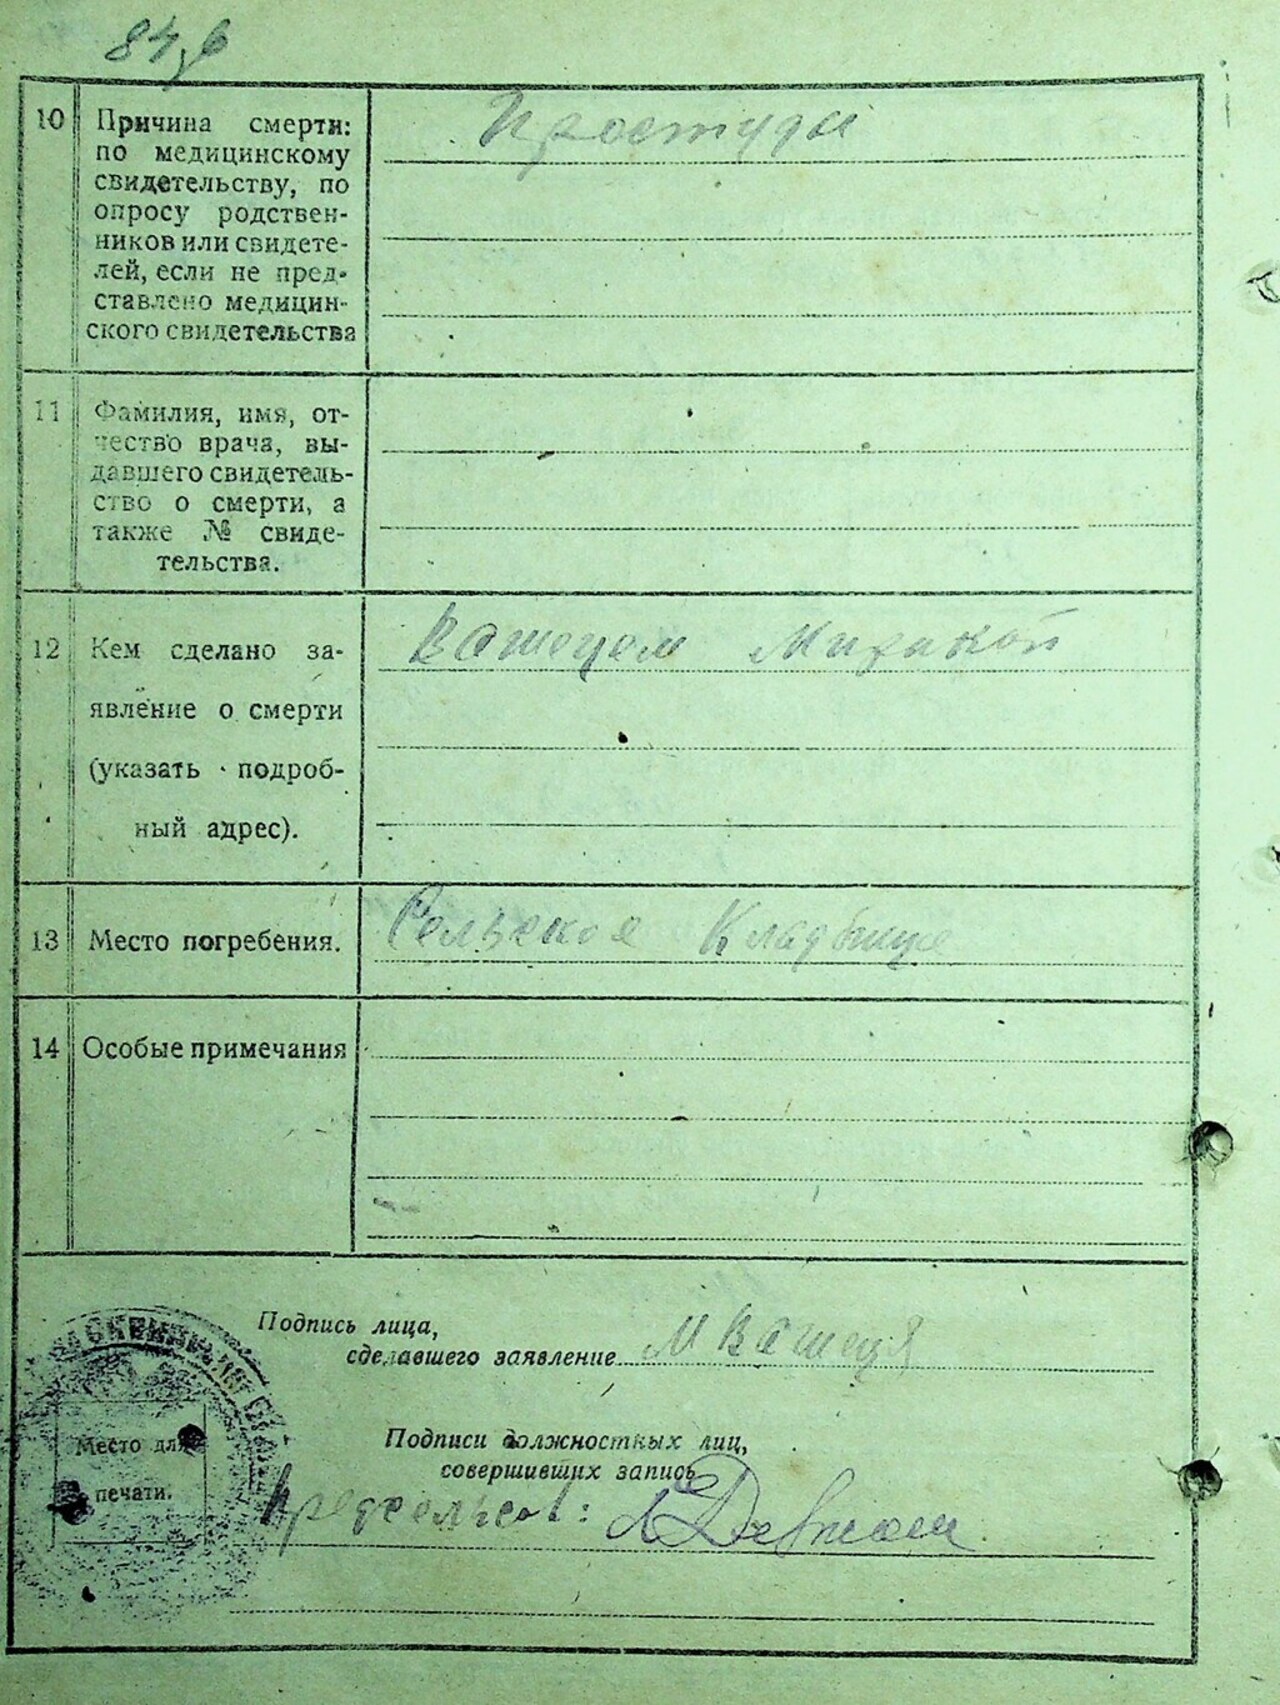 10 Причина смерти: Простуды
по медицинскому
свидетельству, по
опросу родствен-
ников или свидете-
лей, если не пред-
ставлено медицин-
ского свидетельства
11 Фамилия, имя, от-
чество врача, вы-
давшего свидетель-
ство о смерти, а
также № свиде-
тельства.
12 Кем сделано за-
явление о смерти
(указать подроб-
ный адрес).
13 Место погребения. Сельское Кладбище
14 Особые примечания
Подпись лица,
сделавшего заявление
Подписи должностных лиц,
совершивших запись
Место для
печати.
Предсельсов: